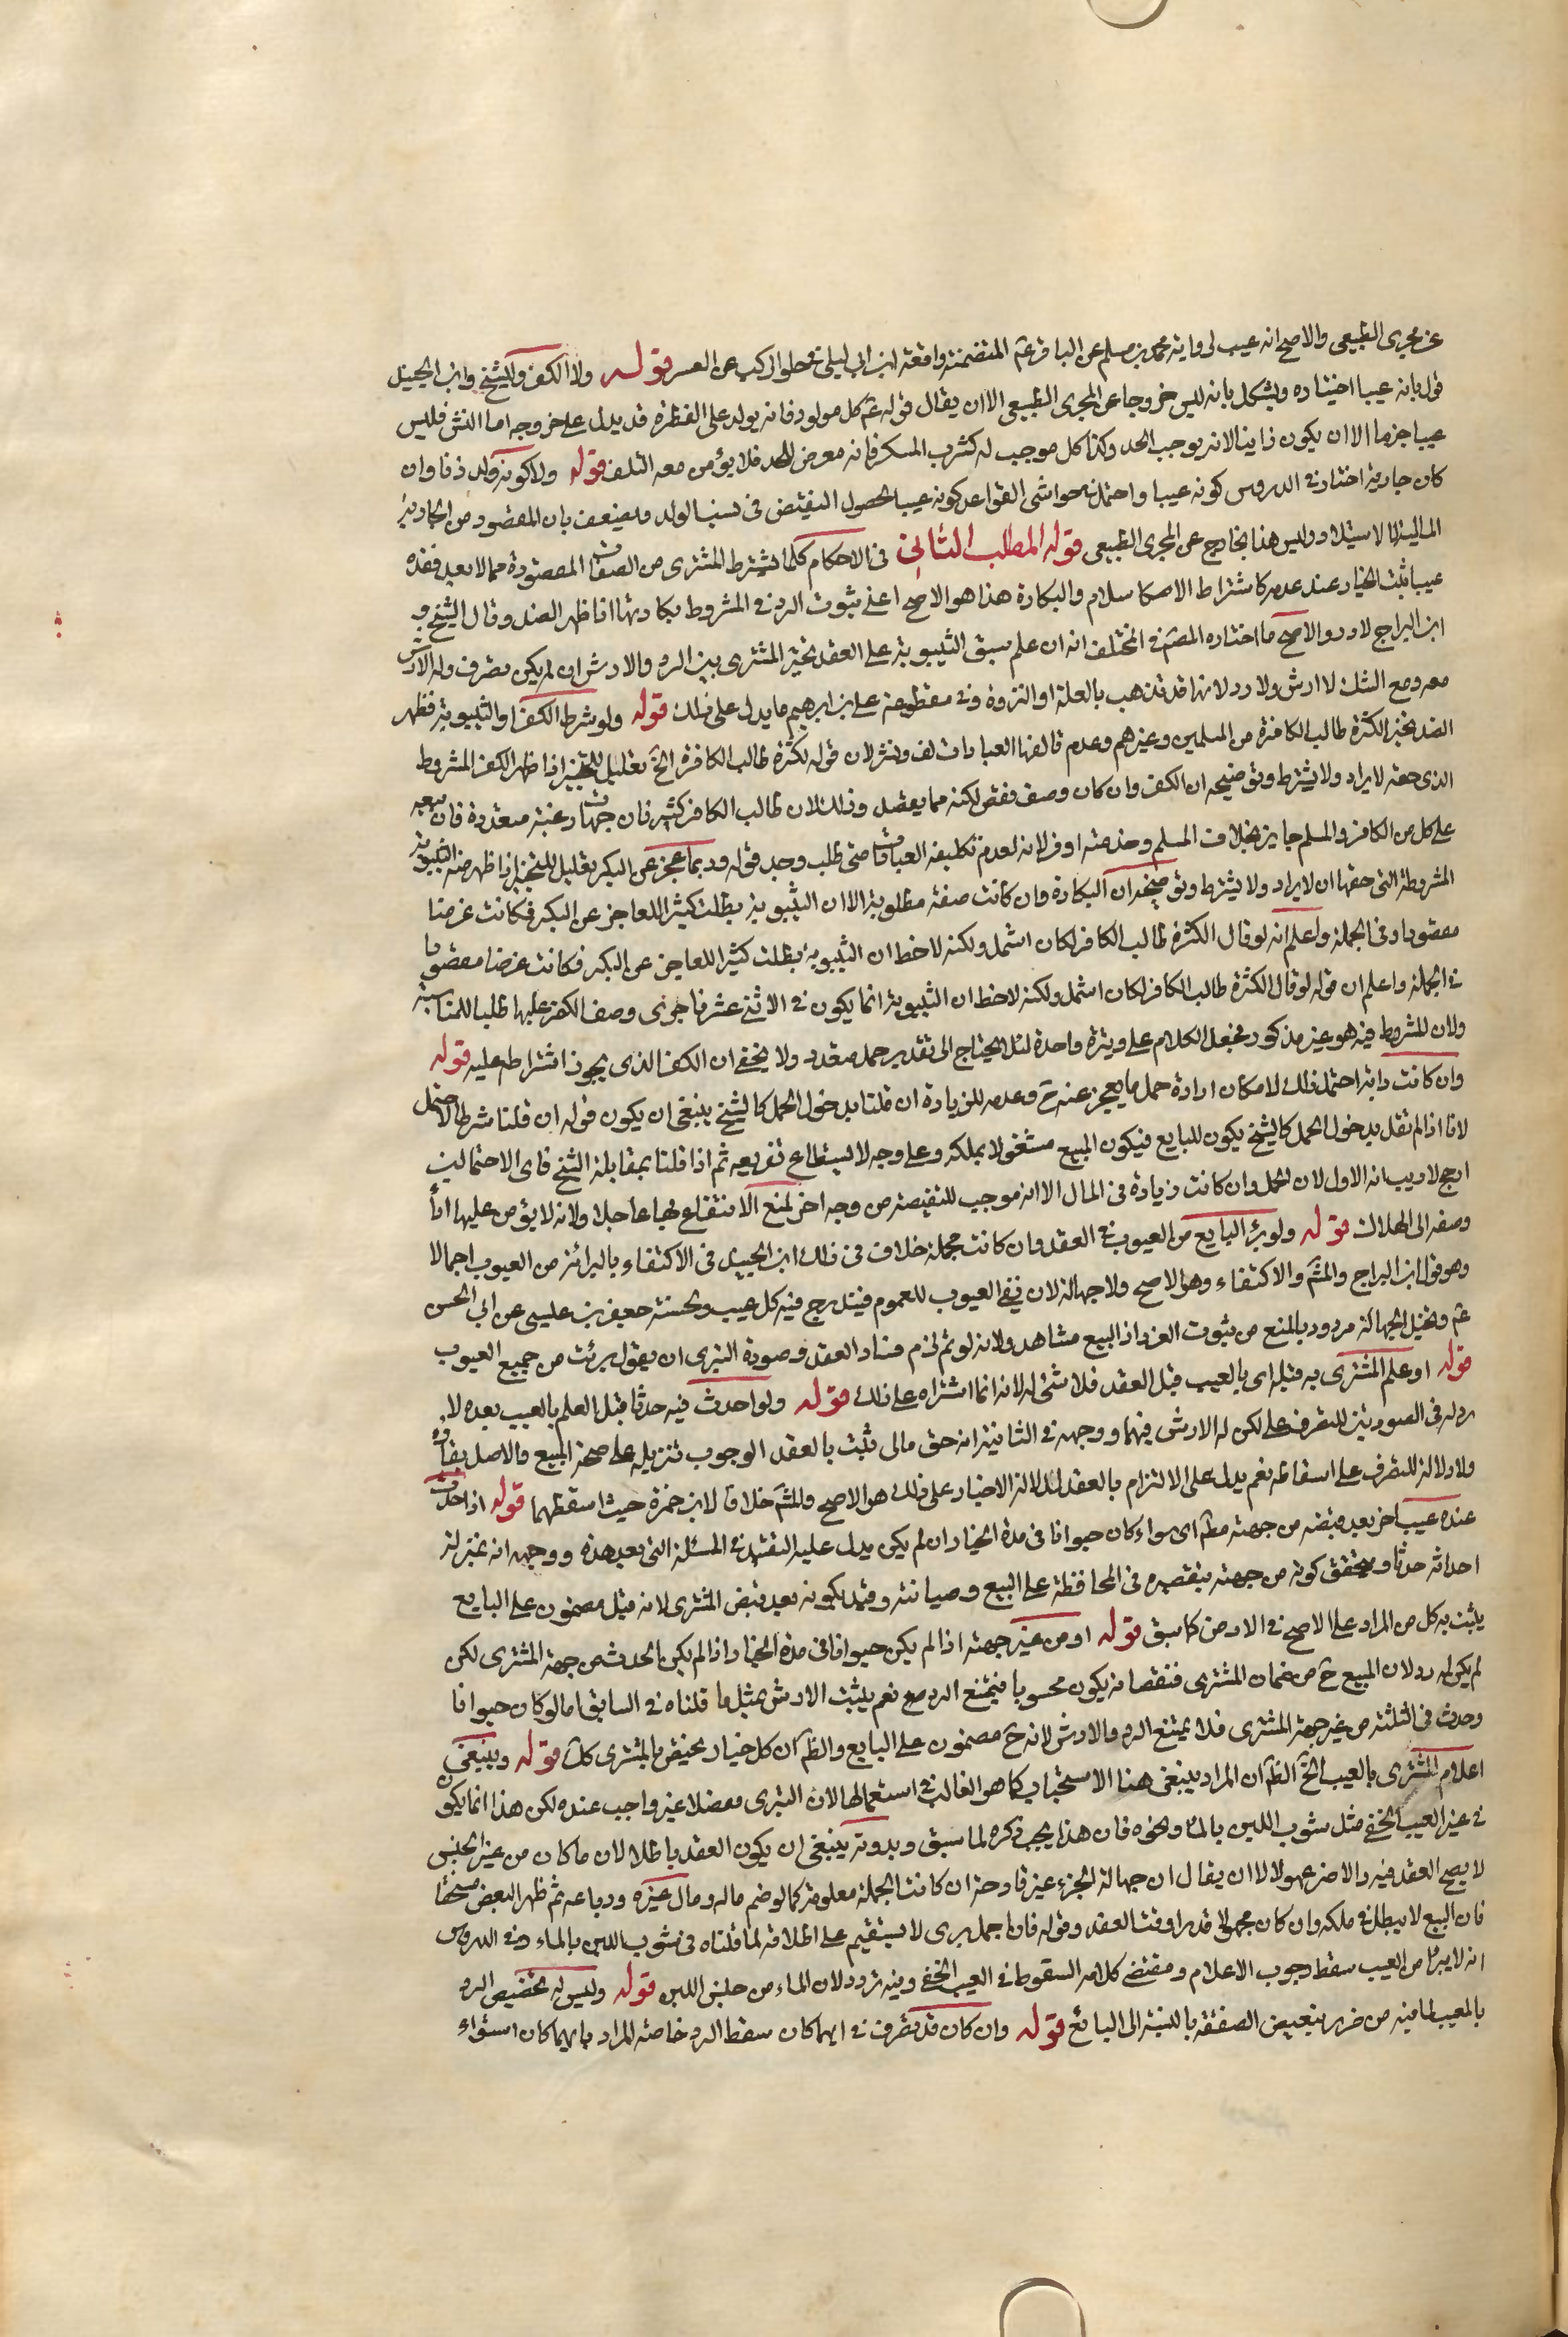 عن مجرى الطبيعى والاصح انه عيب لرواية محمد بن مسلم عن الباقر عم المتضمنة واقعة ابن ابى ليلى فى خلو الركب عن الشعر قوله ولا الكفر والشيخ وابن الجنيد
قول بانه عيبا اختياره ويشكل بانه ليس خروجا عن المجرى الطبيعى الا ان يقال قوله عم كل مولود فانه يولد على الفطرة قد يدل على خروجه اما الغش فليس
عيبا جزما الا ان يكون زانيا لانه يوجب الحد وكذا كل موجب له كشرب المسكر فانه معرض للحد فلا يؤمن معه التلف قوله ولا كونه ولد زنا وان
كان جارية اختار فى الدروس كونه عيبا واحتمل فى حواشى القواعد كونه عيبا لحصول النقيض فى نسب الولد ويضعف بان المقصود من الجارية
المالية لا الاستيلاد وليس هذا بخارج عن المجرى الطبيعى قوله المطلب الثانى فى الاحكام كلما يشترط المشترى من الصفات المقصودة مما لا يعد فقده
عيبا يثبت الخيار عند عدمه كاشتراط الاسلام والبكارة هذا هو الاصح اعنى ثبوت الرد فى المشروط بكارتها اذا ظهر الضد وقال الشيخ و
ابن البراج لا رد والاصح ما اختاره المصنف فى المختلف انه ان علم سبق الثيبوبة على العقد تخير المشترى بين الرد والارش ان لم يكن تصرف وله الارش
معه ومع الشك لا ارش ولا رد لانها قد تذهب بالعلة او النزوة وفى مقطوعة على بن ابرهيم ما يدل على ذلك قوله ولو شرط الكفر او الثيبوبة فظهر
الضد تخير لكثرة طالب الكافرة من المسلمين وغيرهم وعدم العبادات لف ونشر لان قوله لكثرة طالب الكافرة الخ تعليل للتخيير اذا ظهر الكفر المشروط
الذى حقه لا يراد ولا يشترط وتوضيحه ان الكفر وان كان وصف نقص لكنه مما يقصد وذلك لان طالب الكافر كثير فان جهات رغبته متعددة فان بيعه
على كل من الكافر والمسلم جايز بخلاف المسلم وخدمته اوفر لانه لعدم تكليفه العبادات متى طلب وجد قوله وربما عجز عن البكر تعليل للتخيير اذا ظهر ضد الثيبوبة
المشروطة التى حقها ان لا يراد ولا يشترط وتوضيحه ان البكارة وان كانت صفة مطلوبة الا ان الثيبوبة يطلب كثيرا للعاجز عن البكر فكانت غرضا
مقصودا فى الجملة واعلم انه لو قال الكثرة طالب الكافر لكان اشمل ولكنه لاحظ ان الثيبوبة يطلب كثيرا للعاجز عن البكر فكانت غرضا مقصودا
فى الجملة واعلم ان قوله لو قال الكثرة طالب الكافر لكان اشمل ولكنه لاحظ ان الثيبوبة انما يكون فى الانثى فاجرى وصف الكفر عليها طلبا للمناسبة
ولان المشروط فيه هو غير مذكور فجعل الكلام على وتيرة واحدة لئلا يحتاج الى تقدير حمل متعدد ولا يخفى ان الكفر الذى يجوز اشتراطه عليه قوله
وان كانت دابة احتمل ذلك لامكان ارادة حمل ما يعجز عنه ح وعدمه للزيادة ان قلنا بدخول الحمل كالشيخ ينبغى ان يكون قوله ان قلنا شرطا لاحتمل
لانا اذا لم نقل بدخول الحمل كالشيخ يكون للبايع فيكون المبيع مستثنى لا يملكه وعلى وجه لا يستطاع تفريعه ثم اذا قلنا بمقابلة الشيخ فاى الاحتمالين
ارجح لا ريب انه الاول لان الحمل وان كانت زيادة فى المال الا انه موجب للنقيصة من وجه اخر لمنع الانتفاع بها عاجلا ولانه لا يؤمن عليها
وصفه الى الهلاك قوله ولو برئ البايع من العيوب فى العقد وان كانت مجملة خلاف فى ذلك ابن الجنيد فى الاكتفاء بالبرائة من العيوب اجمالا
وهو قول ابن البراج والمشهور الاكتفاء وهو الاصح ولا جهالة لان نفى العيوب للعموم فيندرج فيه كل عيب ولحسنة جعفر بن عيسى عن ابى الحسن
عم وتخيل الجهالة مردود بالمنع من ثبوت الغرر اذ البيع مشاهد ولانه لو تم لزم فساد العقد وصورة التبرى ان يقول برئت من جميع العيوب
قوله او علم المشترى به قبله اى بالعيب قبل العقد فلا شئ له لانه انما اشتراه على ذلك قوله ولو احدث فيه حدثا قبل العلم بالعيب بعده لا
رد له فى الصورتين للتصرف على لكن له الارش فيهما ووجهه فى الثانية انه حق مالى ثبت بالعقد الوجوب تنزيله على صحة المبيع والاصل بقاؤه
ولا دلالة للتصرف على اسقاطه نعم يدل على الالتزام بالعقد لدلالة الاخبار على ذلك هو الاصح والمشهور خلافا لابن حمزة حيث اسقطهما قوله اذا حدث
عنده عيب اخر بعد قبضه من جهته مطلقا اى سواء كان حيوانا فى مدة الخيار ان لم يكن يدل عليه التقييد فى المسئلة التى بعد هذه ووجهه انه بمنزلة
احداثه حدثا ويتحقق كونه من جهته بتقصيره فى المحافظة على المبيع وصيانته وقيد بكونه بعد قبض المشترى لانه قبله مضمون على البايع
يثبت به كل من المراد على الاصح فى الارش كما سبق قوله او من غير جهته اذا لم يكن حيوانا فى مدة الخيار اذا لم يكن الحدث من جهة المشترى لكن
لم يكن له رد لان المبيع ح من ضمان المشترى فنقصانه يكون محسوبا فيمتنع الرد مع نعم يثبت الارش بمثل ما قلناه فى السابق اما لو كان حيوانا
وحدث فى الثلثة من غير جهة المشترى فلا يمتنع الرد والارش لانه ح مضمون على البايع والظ ان كل خيار يختص بالمشترى كك قوله وينبغى
اعلام المشترى بالعيب الخ الظ ان المراد بينبغى هنا الاستحباب كما هو الغالب فى استعمالها لان التبرى مفصلا غير واجب عنده لكن هذا انما يكون
فى غير العيب الخفى مثل شوب اللبن بالماء ونحوه فان هذا يجب ذكره لما سبق وبدونه ينبغى ان يكون العقد باطلا لان ما كان من غير الجنس
لا يصح العقد فيه والاخر مجهولا الا ان يقال ان جهالة الجزء غير قادحة ان كانت الجملة معلومة كما لو ضم ماله ومال غيره وباعه ثم ظهر البعض مستحقا
فان البيع لا يبطل فى ملكه وان كان مجهولا قدره وقت العقد وقوله فان اجمل برى لا يستقيم على اطلاقه لما قلناه فى شوب اللبن بالماء وفى الدروس
انه لا يبرأ من العيب سقط وجوب الاعلام ومقتضى كلامه السقوط فى العيب الخفى وفيه تردد لان الماء من جنس اللبن قوله وليس له تخصيص الرد
بالمعيب لما فيه من ضرر تبعيض الصفقة بالنسبة الى البائع قوله وان كان قد تصرف فى ايهما كان سقط الرد خاصة المراد بايهما كان استواء